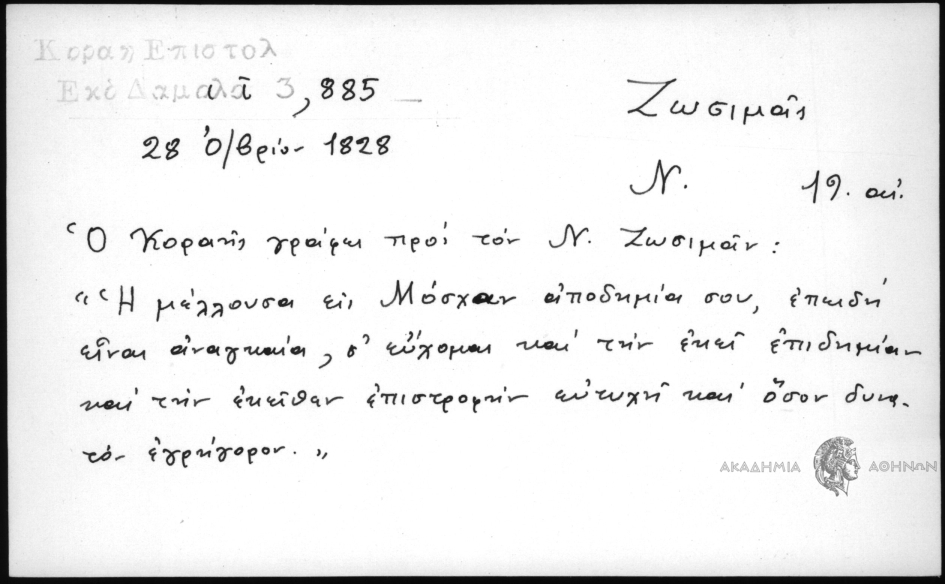 Κοραη Επιστολ
Εκδ Δαμαλα 3, 885
28 Ὀ/βρίου 1828
Ζωσιμᾶς
Ν. 19. αἰ.
Ὁ Κοραῆς γράφει πρὸς τὸν Ν. Ζωσιμᾶν :
“Ἡ μέλλουσα εἰς Μόσχαν ἀποδημία σου, ἐπειδή
εἶναι ἀναγκαία, σ' εὔχομαι καί τήν ἐκεῖ ἐπιδημίαν
καί τήν ἐκεῖθεν ἐπιστροφήν εὐτυχῆ καί ὅσον δυνα-
τόν ἐγρήγορον. „
ΑΚΑΔΗΜΙΑ ΑΘΗΝΩΝ